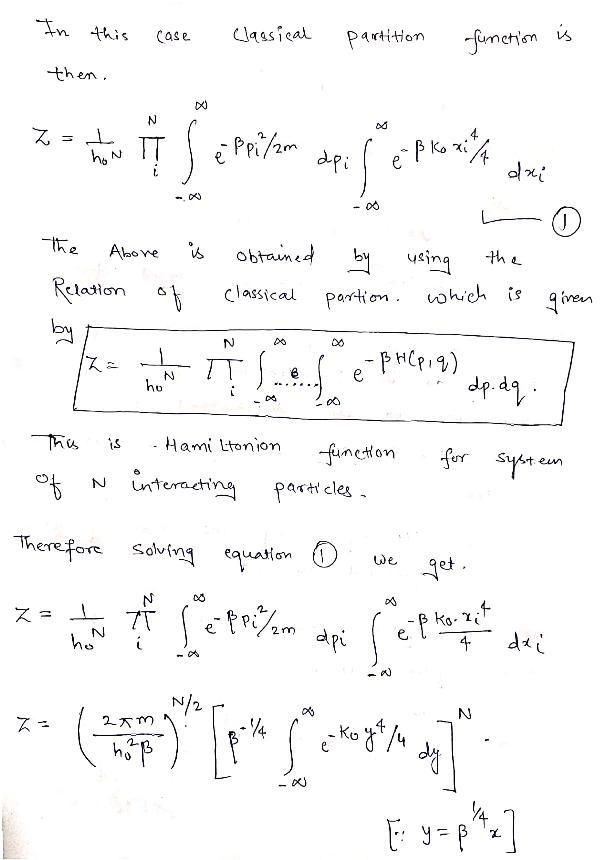 In this case classical partition function is
then.
Z = 1/h₀N ∏ᵢᴺ ∫_{-∞}^{∞} e^{-βpi²/2m} dpi ∫_{-∞}^{∞} e^{-βK₀xi⁴/4} dxi
①
The Above is obtained by using the
Relation of classical partion. which is given
by
Z = 1/h₀ᴺ ∏ᵢᴺ ∫_{-∞}^{∞} ...... ∫_{-∞}^{∞} e^{-βH(p,q)} dp.dq.
This is Hamiltonion function for system
of N interacting particles.
Therefore solving equation ① we get.
Z = 1/h₀ᴺ ∏ᵢᴺ ∫_{-∞}^{∞} e^{-βpi²/2m} dpi ∫_{-∞}^{∞} e^{-β K₀.xi⁴/4} dxi
Z = (2πm/h₀²β)^{N/2} [β^{-1/4} ∫_{-∞}^{∞} e^{-K₀y⁴/4} dy]ᴺ.
[∵ y = β^{1/4}x]